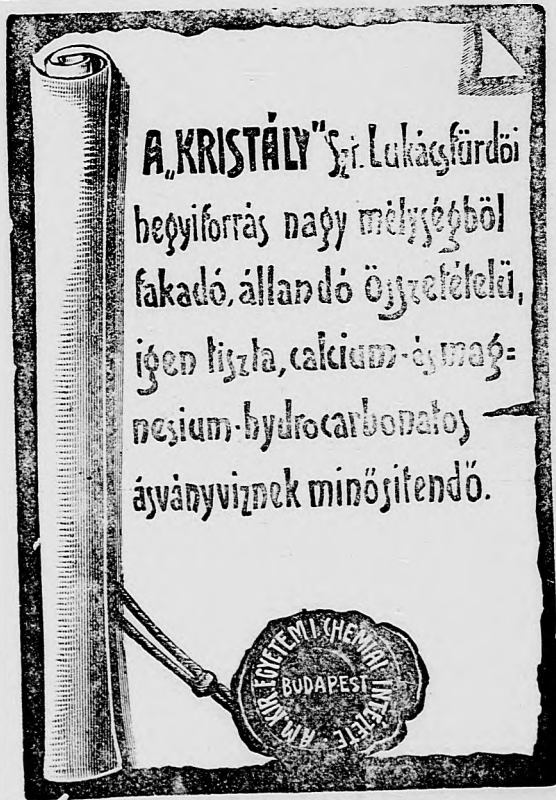 A „KRISTÁLY” Szt. Lukácsfürdői
hegyiforrás nagy mélységből
fakadó, állandó összetételű,
igen tiszta, calcium- és mag=
nesium-hydrocarbonatos
ásványviznek minősitendő.
A M. KIR. EGYETEMI CHEMIAI INTÉZETE
BUDAPEST